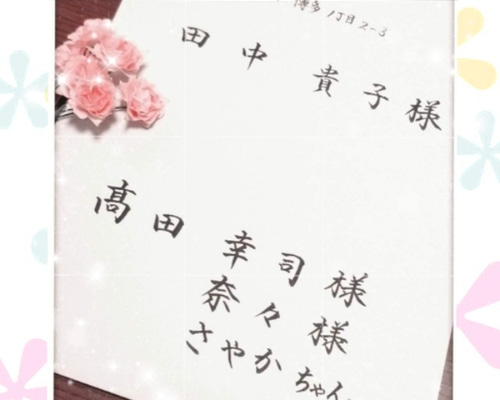 博多1丁目2-3
田中 貴子様
髙田 幸司様
奈々様
さやかちゃん